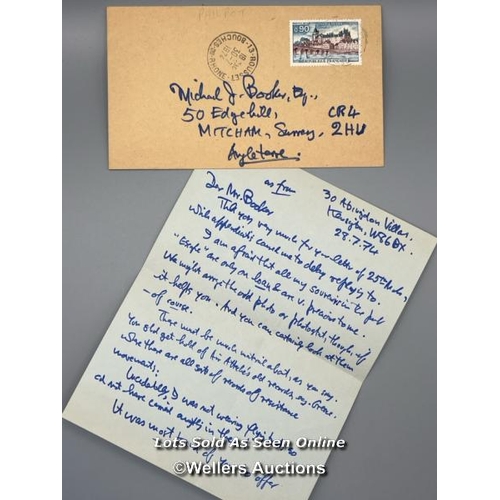 PHILPOT
0.90
RÉPUBLIQUE FRANÇAISE
13 - ROUSSET - BOUCHES DU RHÔNE
Michael J. Booker, Esq.,
50 Edgehill, CR4
MITCHAM, Surrey, 2HU
Angleterre.
as from
30 Abingdon Villas,
Kensington, W8 6BX.
28.7.74
Dear Mr. Booker
Thank you very much for your letter of 25th
with apologies cause me to delay replying to.
I am afraid that all my souvenirs in the
are only on loan & are v. precious to me.
We might arrange the odd photo or photostat, though, if
it helps you. And you can certainly look at them
- of course.
There must be much material about, as you say.
You get hold of Air Attache's old records, e.g. Crete.
there are all sorts of records of resistance
movements.
Incidentally, I was not wearing
did not have
It was most of you to offer
Lots Sold As Seen Online
©Wellers Auctions